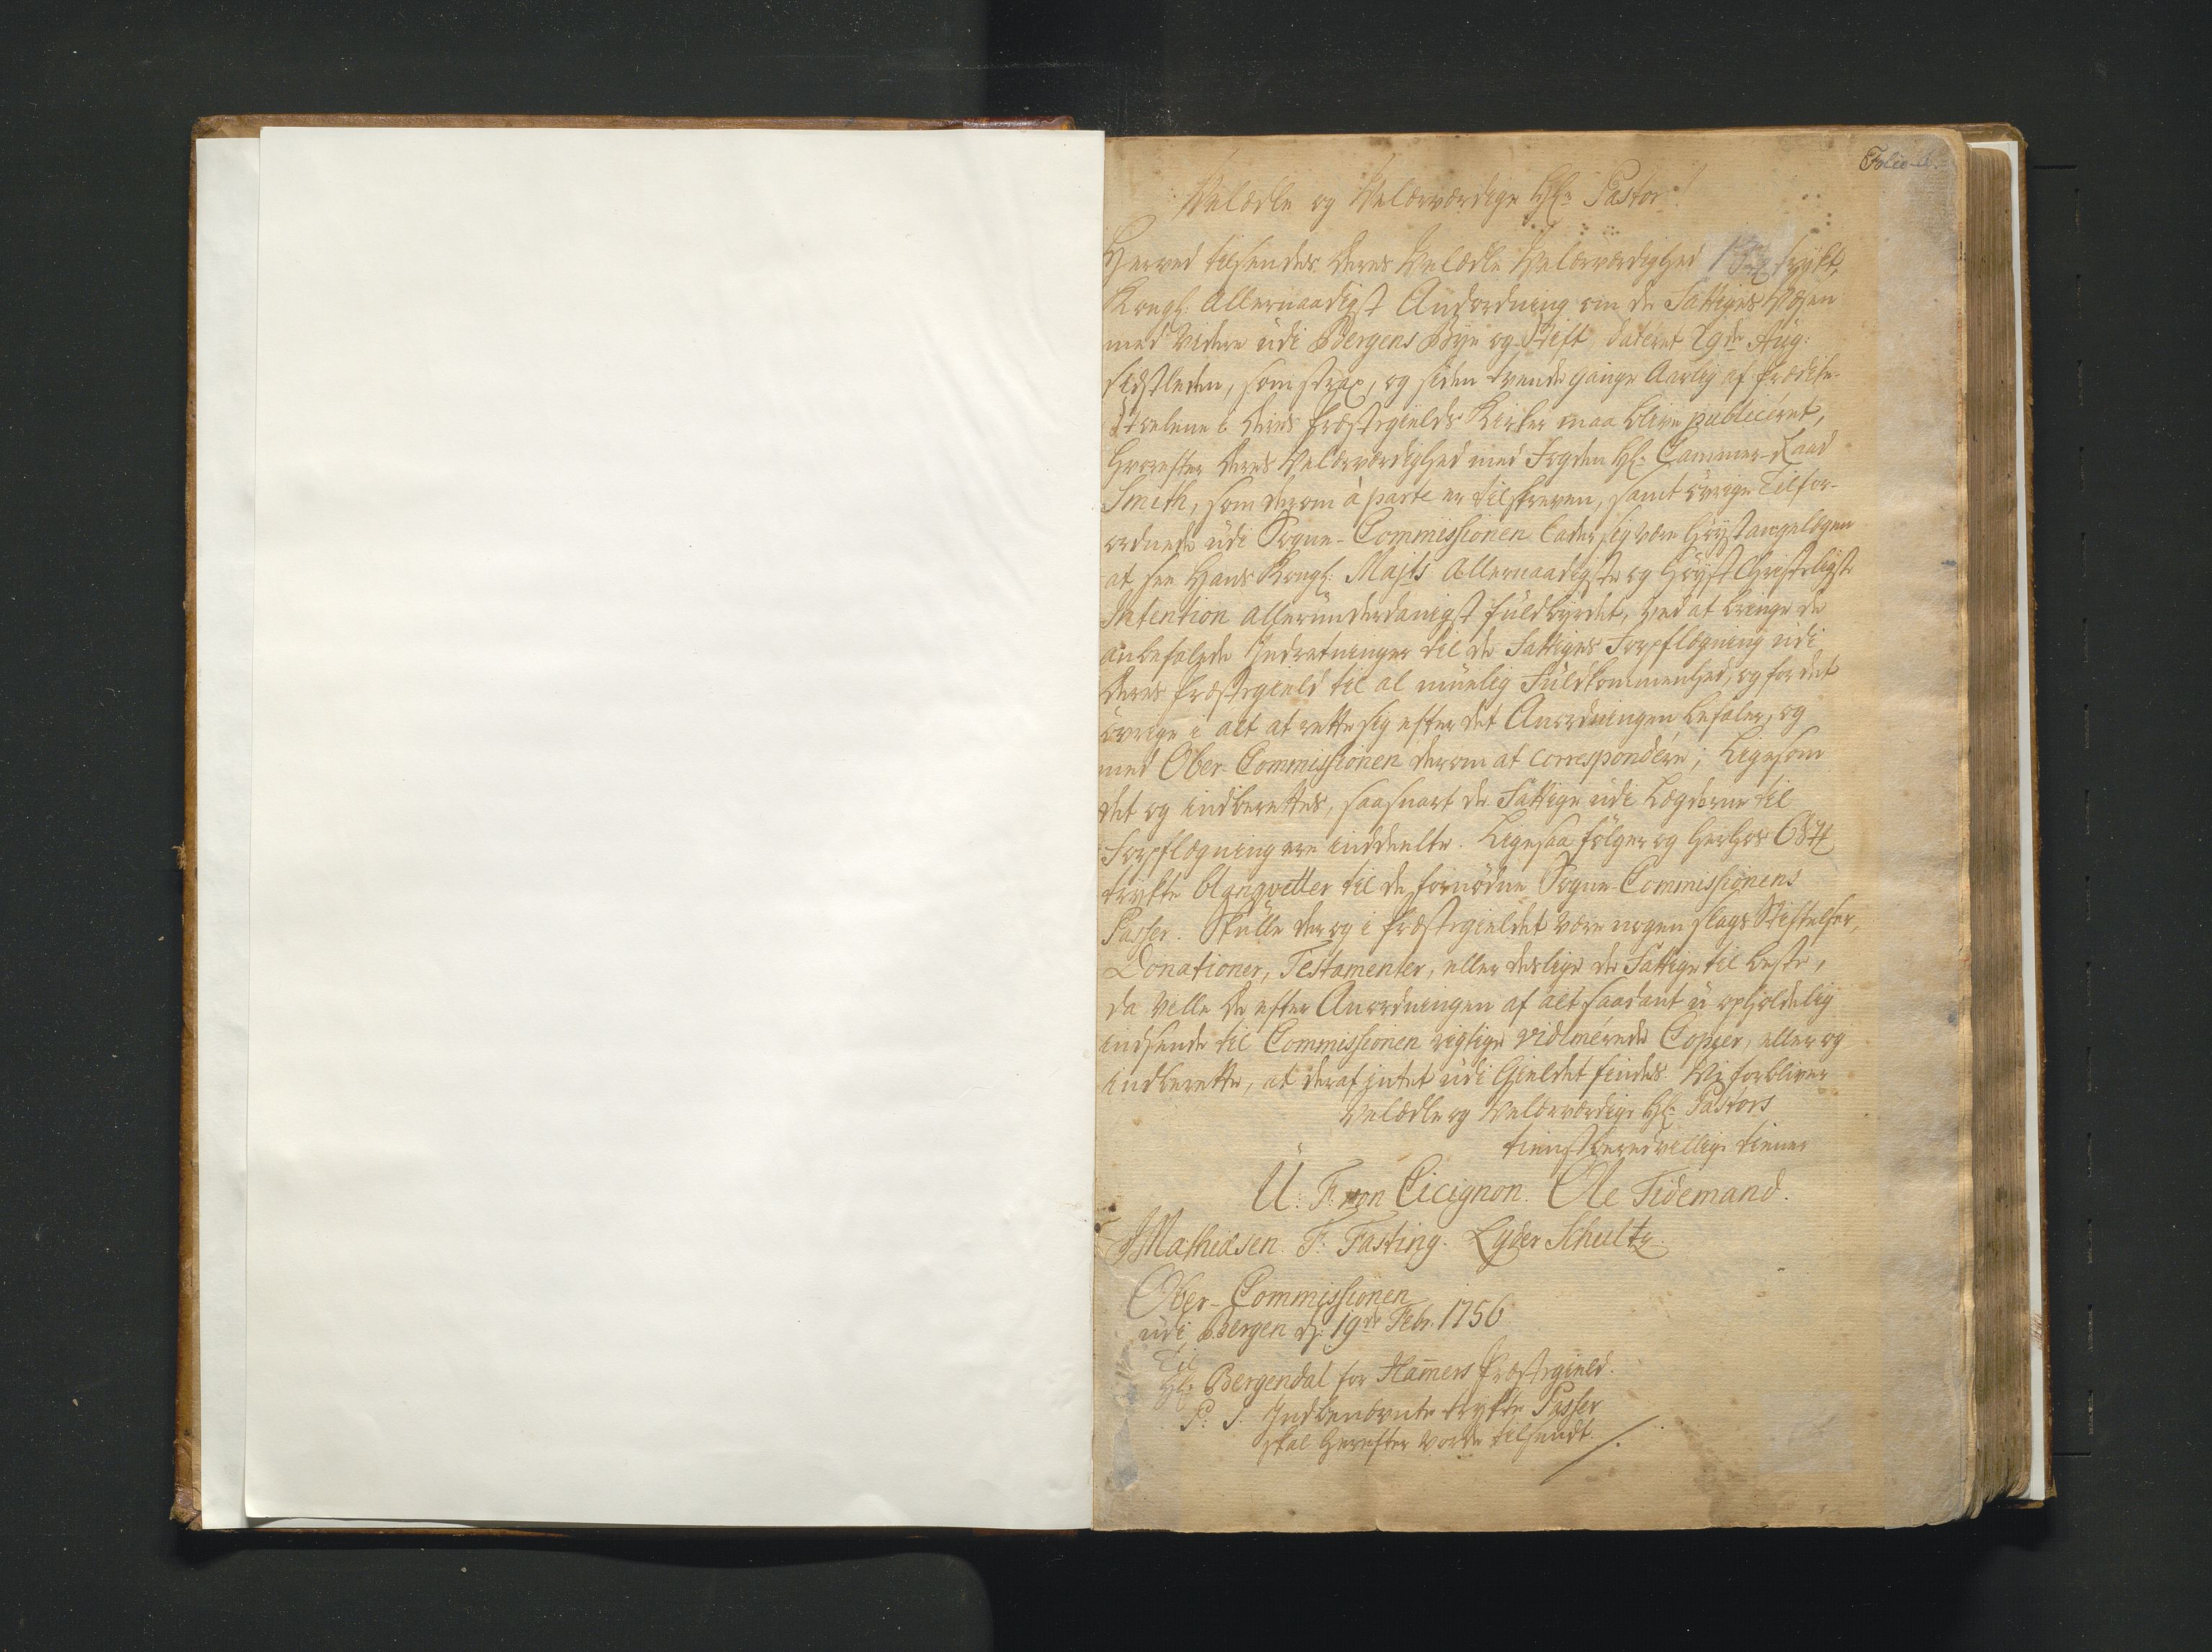 Folio
Velædle og Velærværdige Hr: Pastor!
Herved tilsendes Deres Velædle Velærværdighed trykt,
Kongl: Allernaadigst Andordning om de Fattiges Væsen
med videre udi Bergens Bye og Stift, dateret 29de Aug:
sidstleden, som strax, og siden tvende gange Aarlig af Prædike-
stoelene i Deres Præstegields Kirker maa blive publiceret,
hvorefter Deres Velærværdighed med Fogden Hr: Cammer-Raad
Smith, som derom à parte er tilskreven, samt övrige Tilfor-
ordnede udi Sogne-Commissionen lader sig være höyst angelægen
at see Hans Kongl: Majts Allernaadigste og höyst Christeligste
Intention allerunderdanigst fuldbyrdet, ved at bringe de
anbefalede Indretninger til de Fattiges Forpflægning udi
Deres Præstegield til al muelig Fuldkommenhed, og for det
övrige i alt at rette sig efter det Anordningen befaler, og
med Ober-Commissionen derom at correspondere; Ligesom
det og indberettes, saasnart de Fattige udi Lægderne til
Forpflægning ere inddeelte. Ligesaa fölger og herhos
trykte blanqvetter til de fornödne Sogne-Commissionens
Passer. Skulle der og i Præstegieldet være nogen slags Stiftelser,
Donationer, Testamenter, eller deslige de Fattige til beste,
da ville De efter Anordningen af alt saadant uopholdelig
indsende til Commissionen rigtige vidimerede Copier, eller og
indberette, at deraf intet udi Gieldet findes. Vi forbliver
Velædle og Velærværdige Hr: Pastors
tienstberedvillige tienere
U: F: von Cicignon. Ole Tidemand.
J Mathiesen. F. Fasting. Lyder Schultz.
Ober-Commissionen
udi Bergen d: 19de Febr. 1756
Til
Hr: Bergendal for Hamers Præstegield.
P: S. Indbenævnte trykte Passer
skal herefter vorde tilsendt.